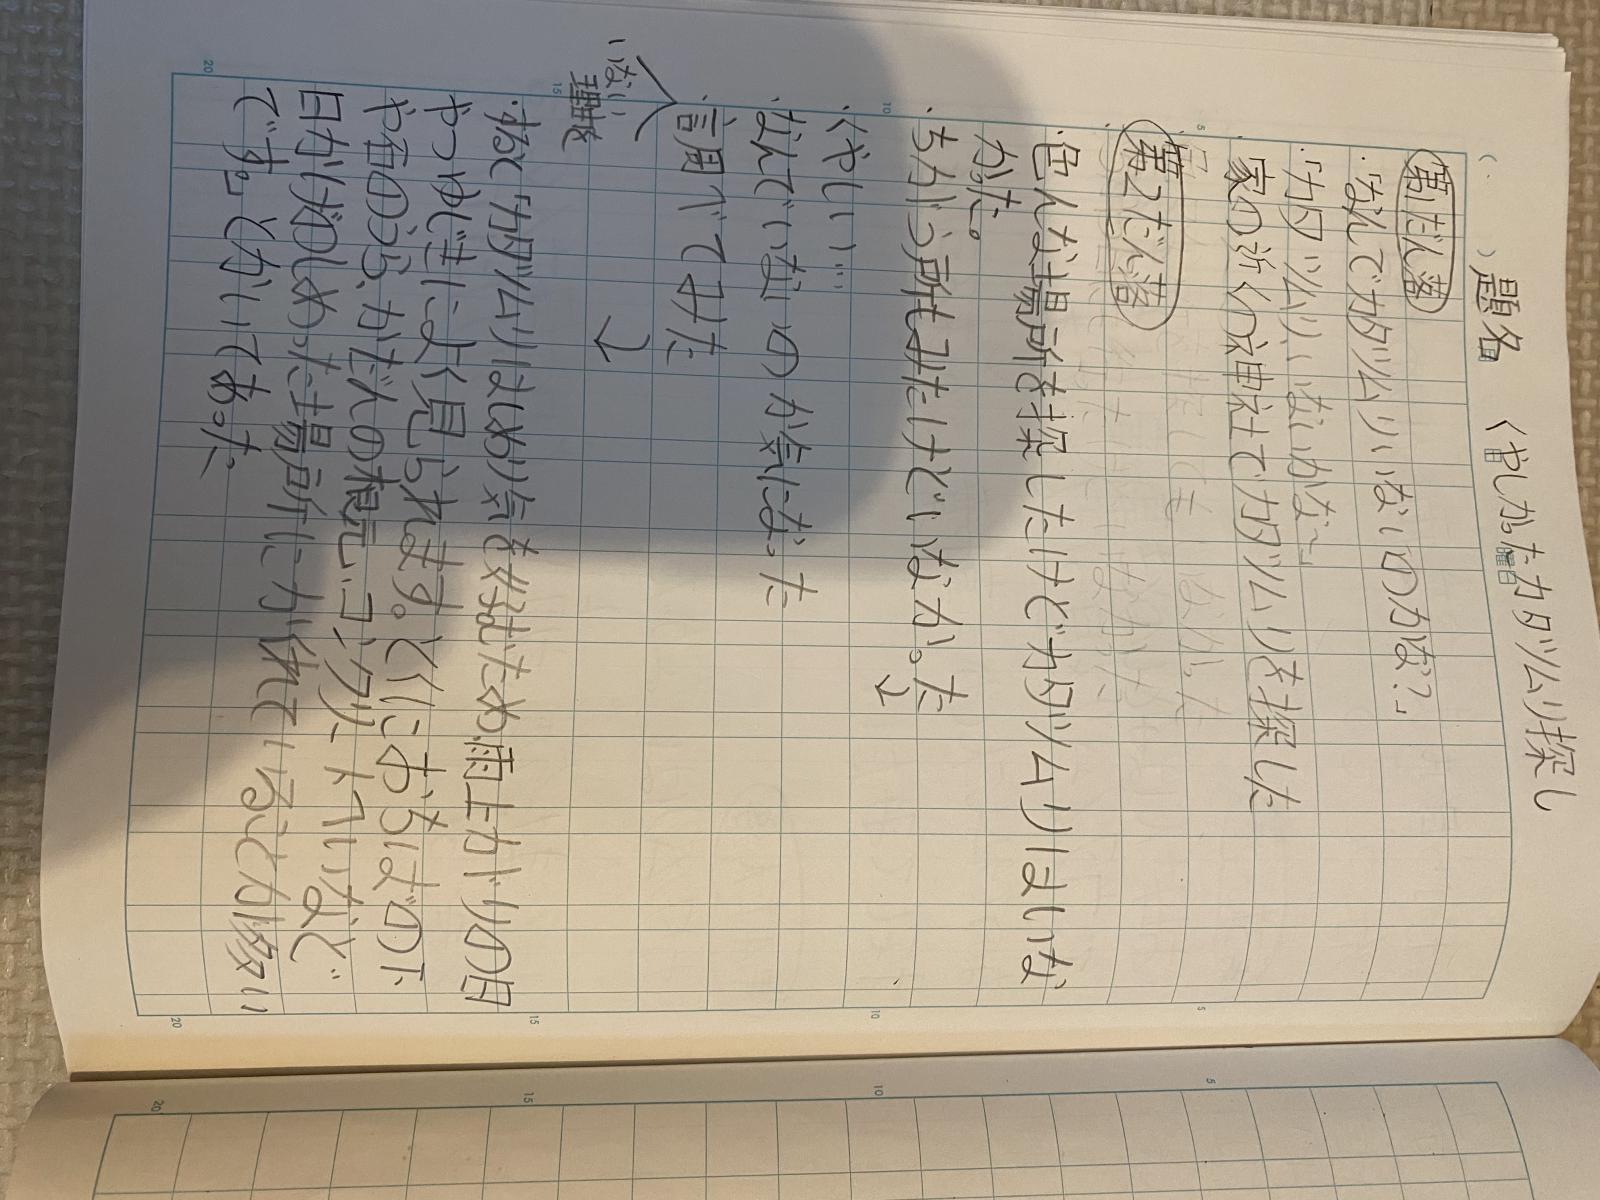 題名 くやしかったカタツムリ探し
第1だん落
・「なんでカタツムリいないのかな?」
・「カタツムリいないかな〜」
家の近くの神社でカタツムリを探した
第2だん落
・色んな場所を探したけどカタツムリはいな
かった。
・ちがう所もみたけどいなかった。→
・くやしい…
・なんでいないのか気になった
・言周べてみた →
いない
理由
・すると「カタツムリはしめり気を好むため雨上がりの日
やつゆどきによく見られます。とくにおちばの下
や石のうら、かだんの根元、コンクリートべいなど
日かげのしめった場所にかくれていることが多い
です。」とかいてあった。
5
10
15
20
5
10
15
20
5
10
15
20